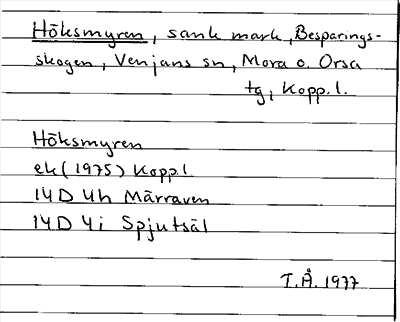 Höksmyren, sank mark, Besparings-
skogen, Venjans sn, Mora o. Orsa
tg, Kopp. l.
Höksmyren
ek (1975) Kopp l.
14 D 4h Märraven
14 D 4i Spjutsäl
T.Å. 1977